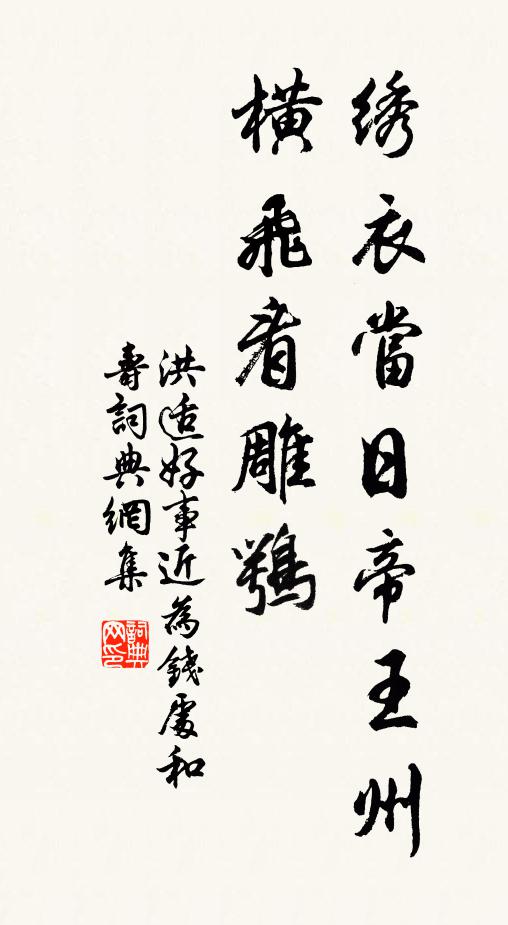 绣衣當日帝王州
橫飛看雕鶚
洪适好事近為錢處和
壽詞典網集
詞典网印